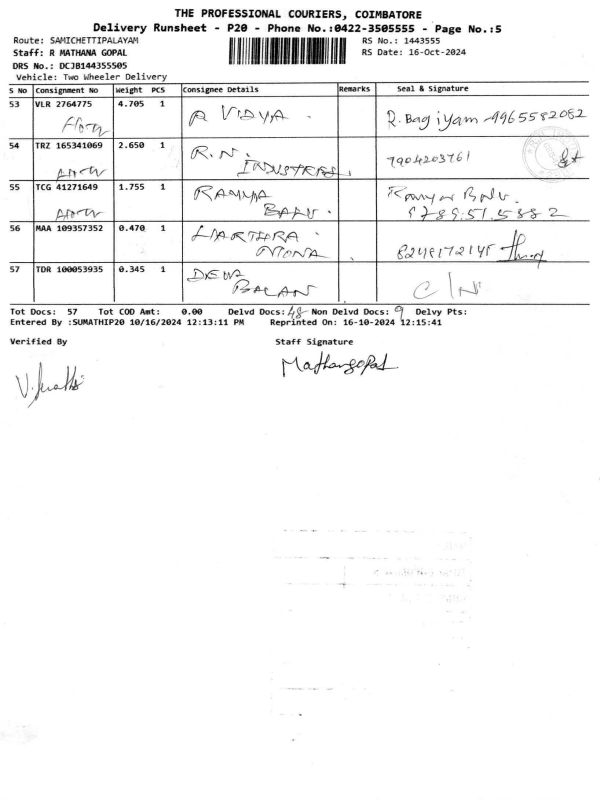 THE PROFESSIONAL COURIERS, COIMBATORE
Delivery Runsheet - P20 - Phone No.:0422-3505555 - Page No.:5
Route: SAMICHETTIPALAYAM
RS No.: 1443555
Staff: R MATHANA GOPAL
RS Date: 16-Oct-2024
DRS No.: DCJB144355505
Vehicle: Two Wheeler Delivery
S No Consignment No Weight PCS Consignee Details Remarks Seal & Signature
53 VLR 2764775 4.705 1 R VIDYA. R. Bagiyam - 9965582082
54 TRZ 165341069 2.650 1 R.N. 7904203761
INDUSTRIES.
55 TCG 41271649 1.755 1 RAMYA Ramya Balu.
BALU. 9789515382
56 MAA 109357352 0.470 1 8248172145
57 TDR 100053935 0.345 1 DEVA C/N
BALAN
Tot Docs: 57 Tot COD Amt: 0.00 Delvd Docs: 48 Non Delvd Docs: 9 Delvy Pts:
Entered By :SUMATHIP20 10/16/2024 12:13:11 PM Reprinted On: 16-10-2024 12:15:41
Verified By Staff Signature
Mathangopal